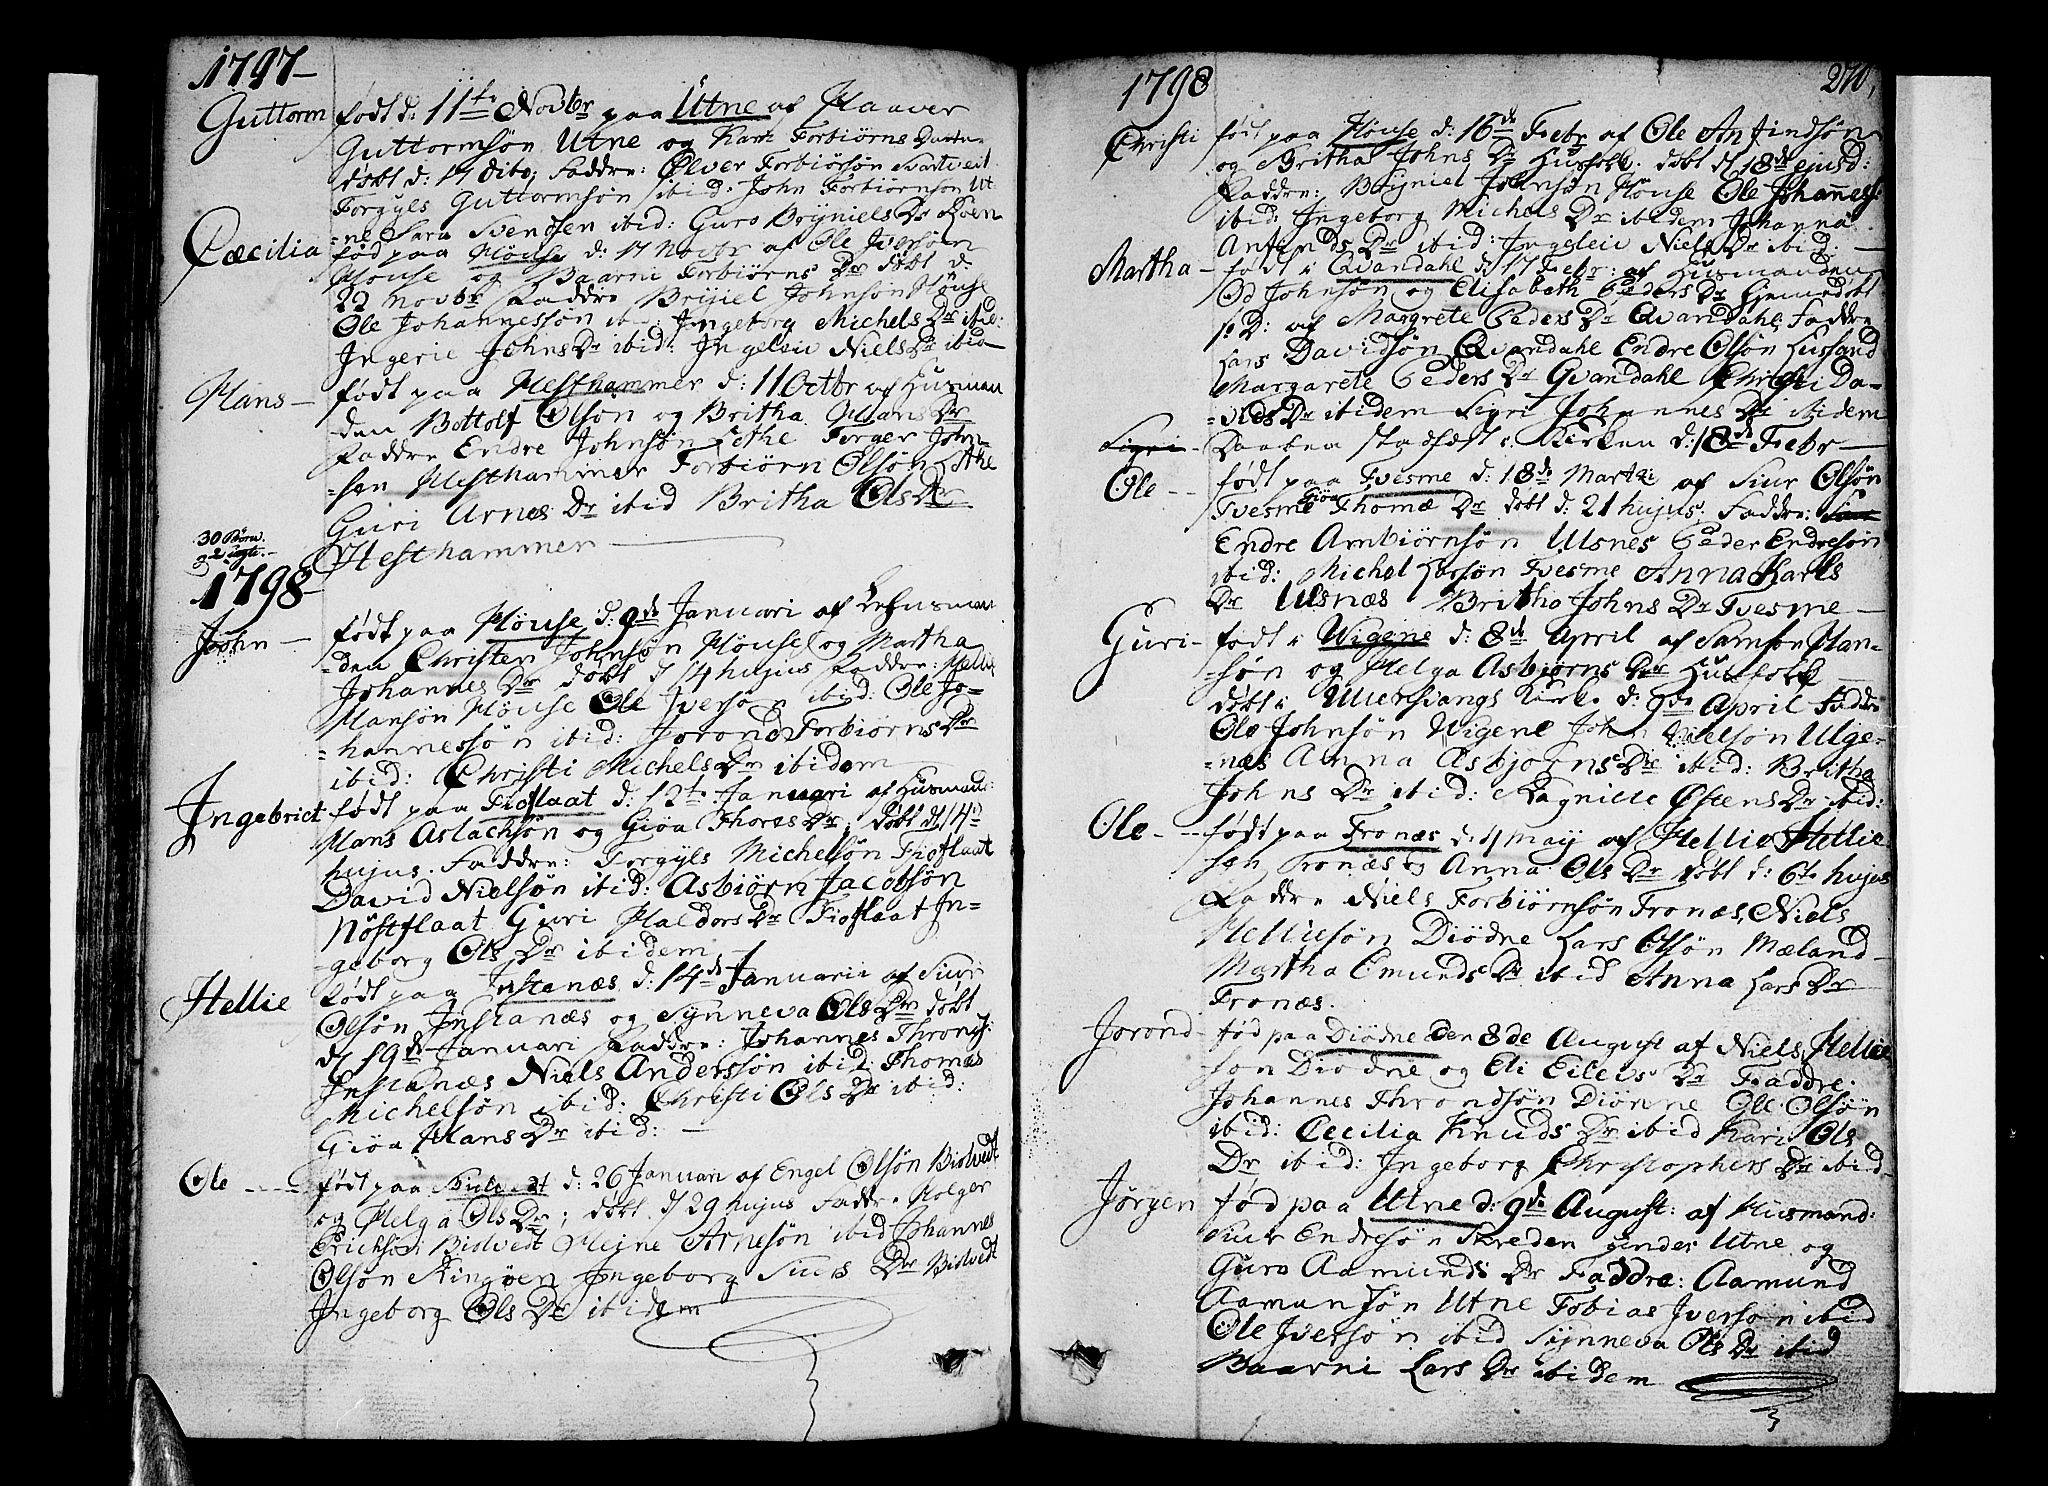 1797-
Guttorm født d: 11te Novbr paa Utne af Haaver
Guttormsøn Utne og Kari Torbiørns Datter
døbt d: 17 dito; Faddre: Ølver Torbiørsøn Svartveit
Torgyls Guttormsøn ibid: John Torbiørnsøn Ut-
=ne Sara Svendsen ibid: Guro Bryniels Dr
Cæcilia fød paa Høuse d: 17 Novbr af Ole Iversøn
Høuse og Baarni Torbiørns Dr døbt d:
22 Novbr Faddre Bryniel Johnsøn Høuse
Ole Johannessøn ibid: Ingeborg Michels Dr ibid:
Ingerie Johns Dr ibid: Ingeleiv Niels Dr ibid
Hans - født paa Hesthammer d: 11 Octbr af Husman
=den Bottolf Olsøn og Britha Hans Dr
Faddre Endre Johnsøn Lothe Torger John-
=sen Hesthammer Torbiørn Olsøn Lothe
Guri Arnes Dr ibid Britha Ols Dr
Hesthammer
30 Børn.
2 Uægte.
1798-
John - født paa Høuse d: 9de Januari af Lehnsman
=den Christen Johnsøn Høuse og Martha
Johannes Dr døbt d 14 hujus Faddre: Hellie
Hansøn Høuse Ole Iversøn ibid: Ole Jo-
=hannessøn ibid: Jorond Torbiørns Dr
ibid: Christi Michels Dr ibidem
Ingebrict født paa Tioflaat d: 12te Januari af Husmand:
Hans Aslachsøn og Giøa Thores Dr; døbt d 14de
hujus. Faddre: Torgyls Michelsøn Tioflaat
David Nielsøn ibid: Asbiørn Jacobsøn
Nøstflaat Guri Haldors Dr Tioflaat In-
-geborg Ols Dr ibidem
Hellie født paa Instanæs d: 14de Januarii af Siur
Olsøn Instanæs og Synneva Ols Dr døbt
d 19de Januari Faddre: Johannes Thronds:
Instanæs Niels Anderssøn ibid: Thomas
Michelsøn ibid: Christi Ols Dr ibid:
Giøa Hans Dr ibid: -
Ole --- født paa Bidvedt d: 26 Januari af Engel Olsøn Bidvedt
og Helga Ols Dr; døbt d 29 hujus Faddre Holger
Erichsøn Bidvedt Heine Arnesøn ibid Johannes
Olsøn Ringøen Ingeborg Siurs Dr Bidvedt
Ingeborg Ols Dr ibidem
1798
270,
Christi født paa Høuse d: 16de Febr af Ole Anfindsøn
og Britha Johns Dr Husfolk. døbt d 18de ejusd:
Faddre: Bryniel Johnsøn Høuse Ole Johanness:
ibid: Ingeborg Michels Dr ibidem Johanna
Anfinds Dr ibid: Ingeleiv Niels Dr ibid: -
Martha - født i Qvandahl d 17 Febr: af Husmanden
Od Johnsøn og Elisabeth Peders Dr hjemedøbt
s: D: af Margrete Peders Dr Qvandahl; Faddre
Lars Davidsøn Qvandahl Endre Olsøn Hussand
Margarete Peders Dr Qvandahl Christi Da-
=vids Dr ibidem Sigri Johannes Dr ibidem
Sigri- Daaben stadfæst i Kirken d: 18de Febr -
Ole -- født paa Tvesme d: 18de Marti: af Siur Olsøn
Tvesme Giøa Thomæ Dr døbt d: 21 hujus: Faddre:
Endre Ambiørnsøn Ulsnes Peder Endresøn
ibid: Michel Larsøn Tvesme Anna Karls
Dr Ulsnæs Britha Johns Dr Tvesme -
Guri- født i Wigene d: 8de April af Samson Han-
=søn og Helga Asbjørns Dr Husfolk
døbt i Ullensvangs Kirke d: 9de April Faddre
Ole Johnsøn Wigene John Nielsøn Ulge-
=næs Anna Asbjørns Dr ibid: Britha
Johns Dr ibid: Ragnille Østens Dr ibid:
Ole --- født paa Tronæs d: 4 May af Hellie Hellie
sen Tronæs og Anna Ols Dr døbt d: 6te hujus
Faddre Niels Torbiørnsøn Tronæs, Niels
Helliesøn Diødne Lars Olsøn Mæland
Martha Emunds Dr ibid Anna Lars Dr
Tronæs.
Jorond- fød paa Diødne den 8de August af Niels Hellie
søn Diødne og Eli Eilevs Dr Faddre:
Johannes Throndsøn Diønne Ole Olsøn
ibid: Cecilia Knuds Dr ibid Kari Ols
Dr ibid: Ingeborg Christophers Dr ibid
Jørgen fød paa Utne d: 9de August: af Husmand:
Siur Endresøn Skreden under Utne og
Guro Aamunds Dr Faddre: Aamund
Aamunsøn Utne Tobias Iversøn ibid
Ole Iversøn ibid Synneva Ols Dr ibid
Baarni Lars Dr ibidem